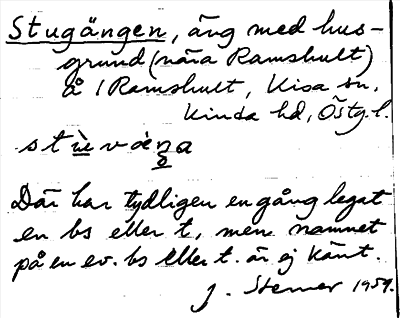 Stugängen, äng med hus-
grund (nära Ramshult)
å 1 Ramshult, Kisa sn,
Kinda hd, Östg. l.
Där har tydligen en gång legat
en bs eller t, men namnet
på en ev. bs eller t. är ej känt.
J. Sterner 1959.